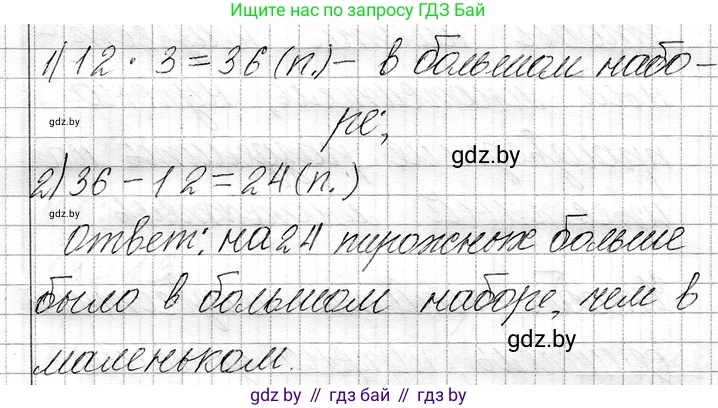 Ищите нас по запросу ГДЗ Бай
1) 12 · 3 = 36 (п.) – в большом набо-
gdz.by
ре;
gdz.by
2) 36 – 12 = 24 (п.)
gdz.by
Ответ: на 24 пирожных больше
было в большом наборе, чем в
gdz.by
маленьком.
gdz.by // гдз бай // гдз by